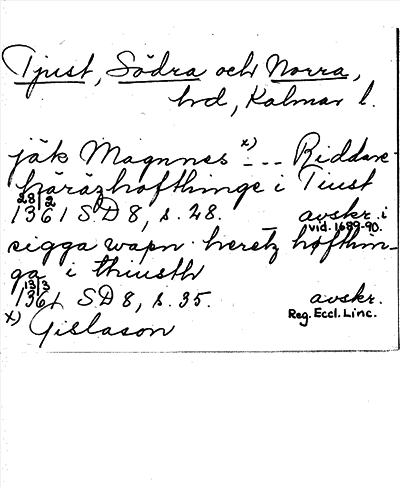 Tjust, Södra och Norra,
hd, Kalmar l.
jäk Magnnes x) - - - Riddare
häräzhöfthinge i Tiust
28/2
1361 SD 8, s. 28. avskr. i
vid. 1689-90.
sigga wapn heretz höfthin-
ga i thiusth
13/3
1361 SD 8, s. 35. avskr.
Reg. Eccl. Linc.
x) Gislason